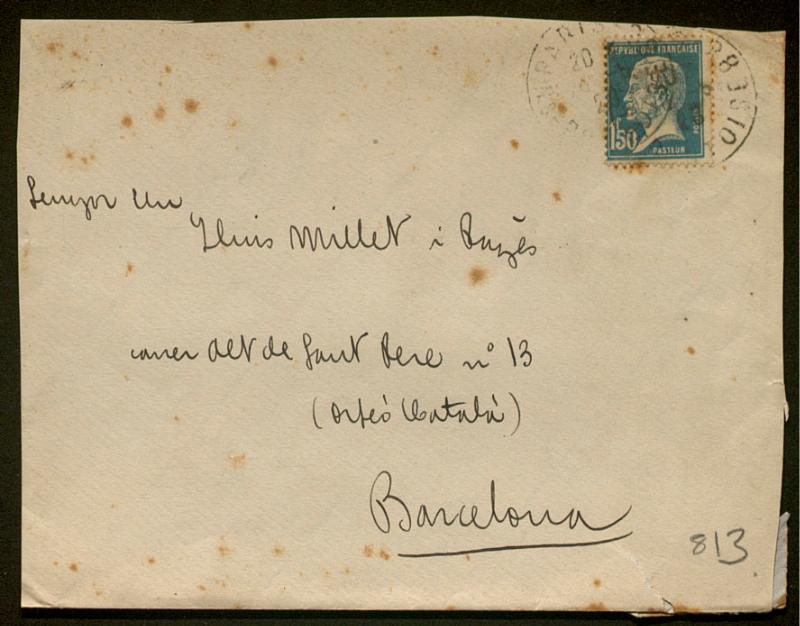 REPUBLIQUE FRANÇAISE
1F50
PASTEUR
POSTES
Senyor En
Lluis Millet i Pagès
carrer Alt de Sant Pere nº 13
(Orfeó Català)
Barcelona
813